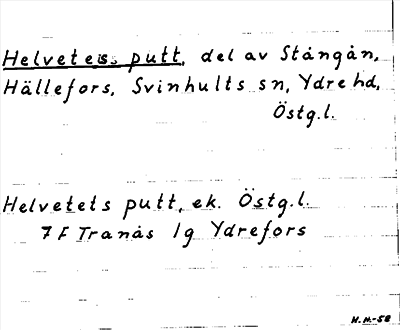 Helvetets putt, del av Stångån,
Hällefors, Svinhults sn, Ydre hd,
Östg.l.
Helvetets putt, ek. Östg.l.
7 F Tranås 1g Ydrefors
H.N.-58